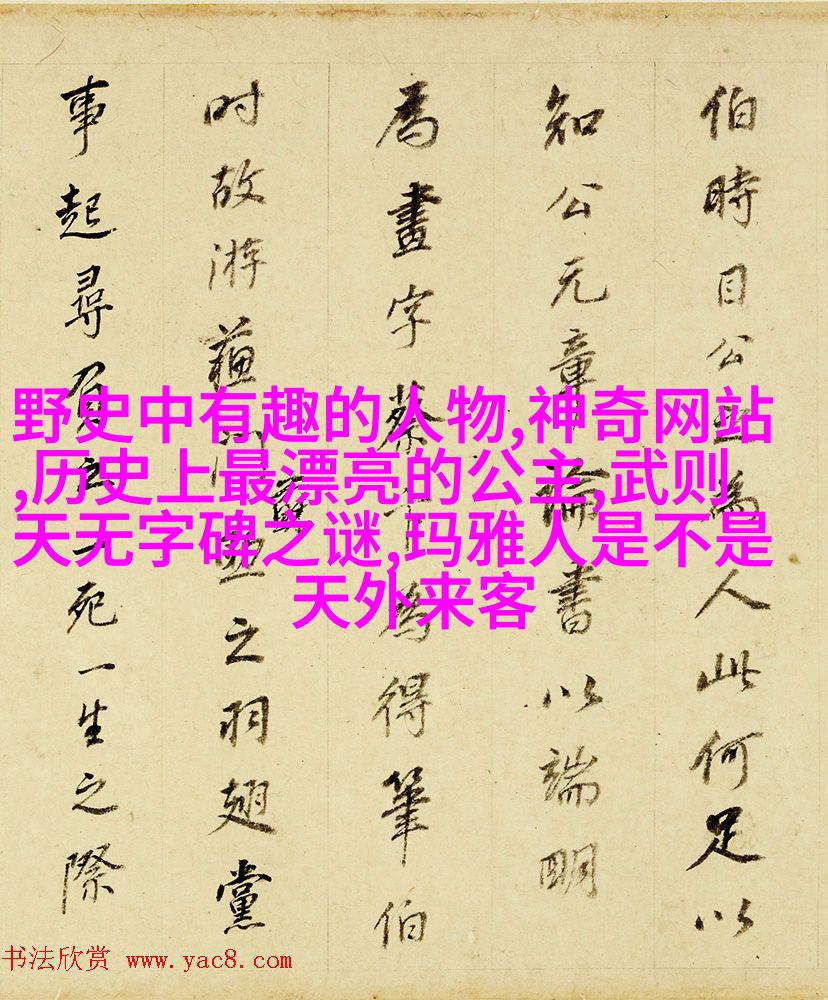 伯時目公
為人此何足以
知公元章論書以端明
為畫字蔡
為得筆伯
时故游蘓
之羽翅黨
事起尋
一死一生之際
野史中有趣的人物,神奇网站
,历史上最漂亮的公主,武则
天无字碑之谜,玛雅人是不是
天外来客
书法欣赏 www.yac8.com